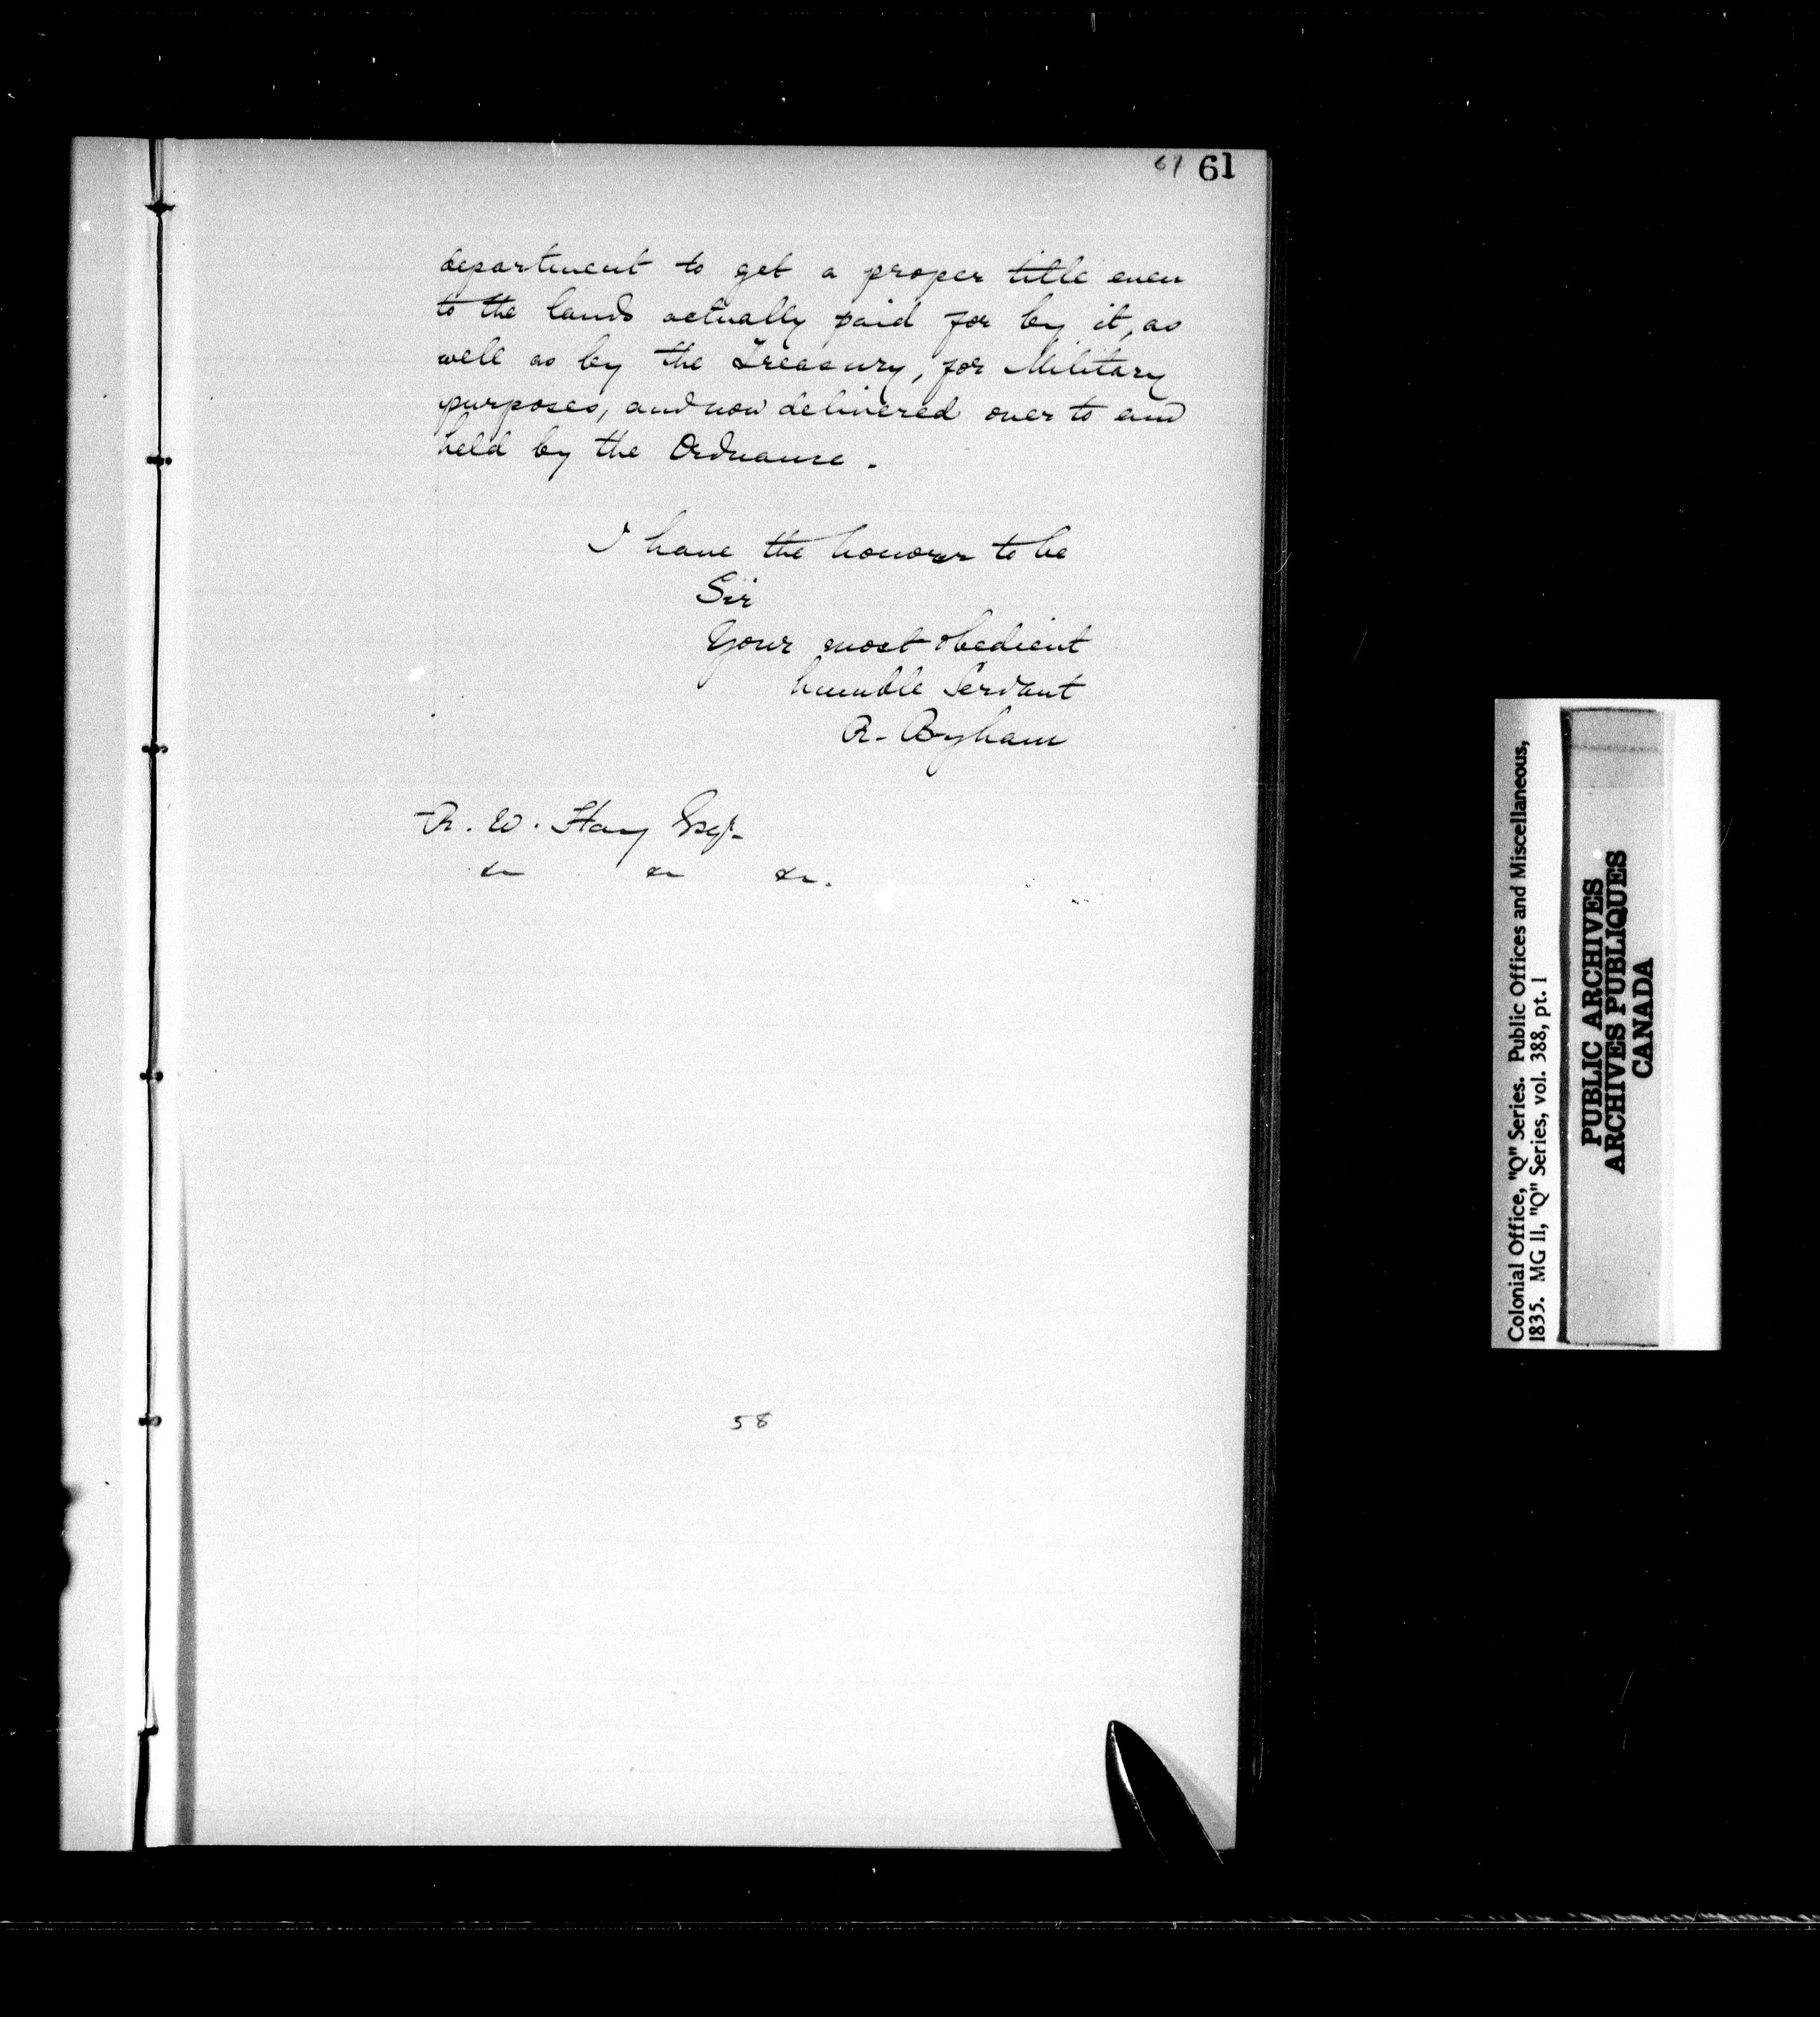 61 61
department to get a proper title even
to the lands actually paid for by it, as
well as by the Treasury, for Military
purposes, and now delivered over to and
held by the Ordnance.
I have the honour to be
Sir
Your most obedient
humble Servant
R. Byham
R. W. Hay Esqr.
&c &c &c.
58
Colonial Office, "Q" Series. Public Offices and Miscellaneous,
1835. MG 11, "Q" Series, vol. 388, pt. 1
PUBLIC ARCHIVES
ARCHIVES PUBLIQUES
CANADA